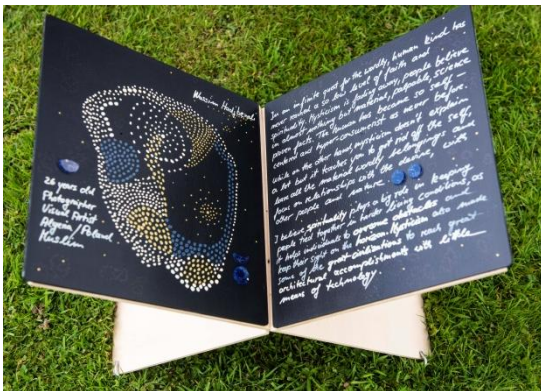 26 years old
Photographer
Visual Artist
Algeria / Poland
Muslim
In an infinite quest for the worldly, human kind has
never wanted a so short level of faith and
spirituality. Mysticism is fading away, people believe
in almost nothing but material, palpable, science
proven facts. The human has became so self-
centered and hyper-consumerist as never before.
while on the other hand, mysticism doesn't explain
a lot but it teaches you to get rid off the self,
leave all the material worldly belongings and
focus on relationships with the deity, with
other people and nature.
I believe spirituality plays a big role in keeping
people tied together in harder living conditions as
it helps individuals to overcome obstacles and
keep their sight on the horizon. Mysticism also made
some of the great civilizations to reach great
architectural accomplishments with little
means of technology.